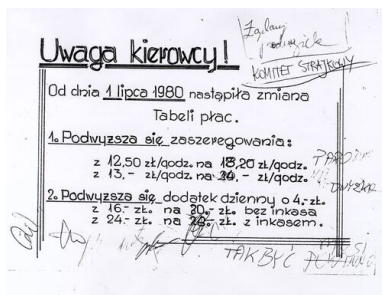 Uwaga kierowcy!
KOMITET STRAJKOWY
Od dnia 1 lipca 1980 nastąpiła zmiana
Tabeli płac.
1. Podwyższa się zaszeregowania:
z 12,50 zł/godz. na 18,20 zł/godz.
z 13,- zł/godz. na 20,- zł/godz.
2. Podwyższa się dodatek dzienny o 4.- zł.
z 16.- zł. na 20.- zł. bez inkasa
z 24.- zł. na 28.- zł. z inkasem.
TAK BYĆ